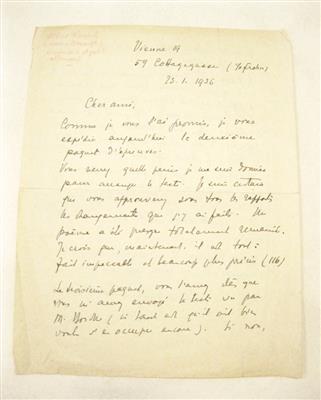 Vienne 19
59 Cottagegasse
23.1.1936
Cher ami,
Comme je vous l'ai promis, je vous
expédie aujourd'hui le deuxième
paquet d'épreuves.
Vous verrez quelle peine je me suis donnée
pour arranger le texte. Je suis certain
que vous approuverez sous tous les rapports
les changements que j'y ai faits. Un
poème a été presque totalement remanié.
Je crois que, maintenant, il est tout à
fait impeccable et beaucoup plus précis (116)
Le troisième paquet, vous l'aurez dès que
vous m'aurez envoyé le texte vu par
M. (si tant est qu'il ait bien
voulu s'en occuper encore). Si non,